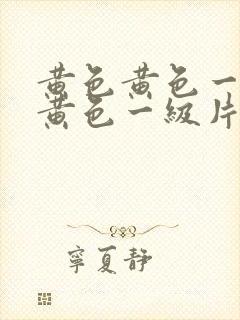 黄色黄色一
黄色一級片
寧夏静